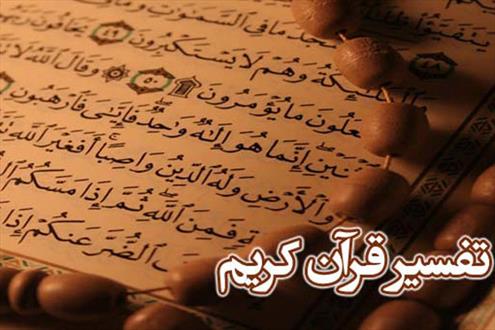 مَا فِي السَّمَٰوَٰتِ وَمَا
وَهُمْ لَا يَسْتَكْبِرُونَ ٤٩ يَخَافُونَ
مَا يُؤْمَرُونَ ۩ ٥٠ وَقَالَ اللَّهُ لَا
إِنَّمَا هُوَ إِلَٰهٌ وَٰحِدٌ فَإِيَّٰيَ فَارْهَبُونِ
وَالْأَرْضِ وَلَهُ الدِّينُ وَاصِبًا أَفَغَيْرَ اللَّهِ
فَمِنَ اللَّهِ ثُمَّ إِذَا مَسَّكُمُ
الضُّرَّ عَنكُمْ إِذَا
تفسیر قرآن کریم